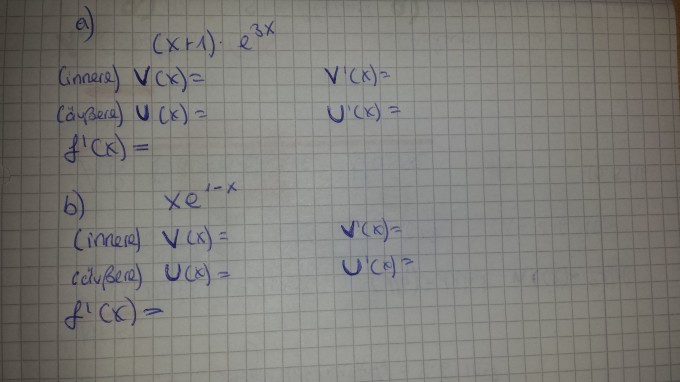 a)
(x+1) · e^3x
(innere) V(x) = V'(x) =
(äußere) U(x) = U'(x) =
f'(x) =
b) xe^1-x
(innere) V(x) = V'(x) =
(äußere) U(x) = U'(x) =
f'(x) =